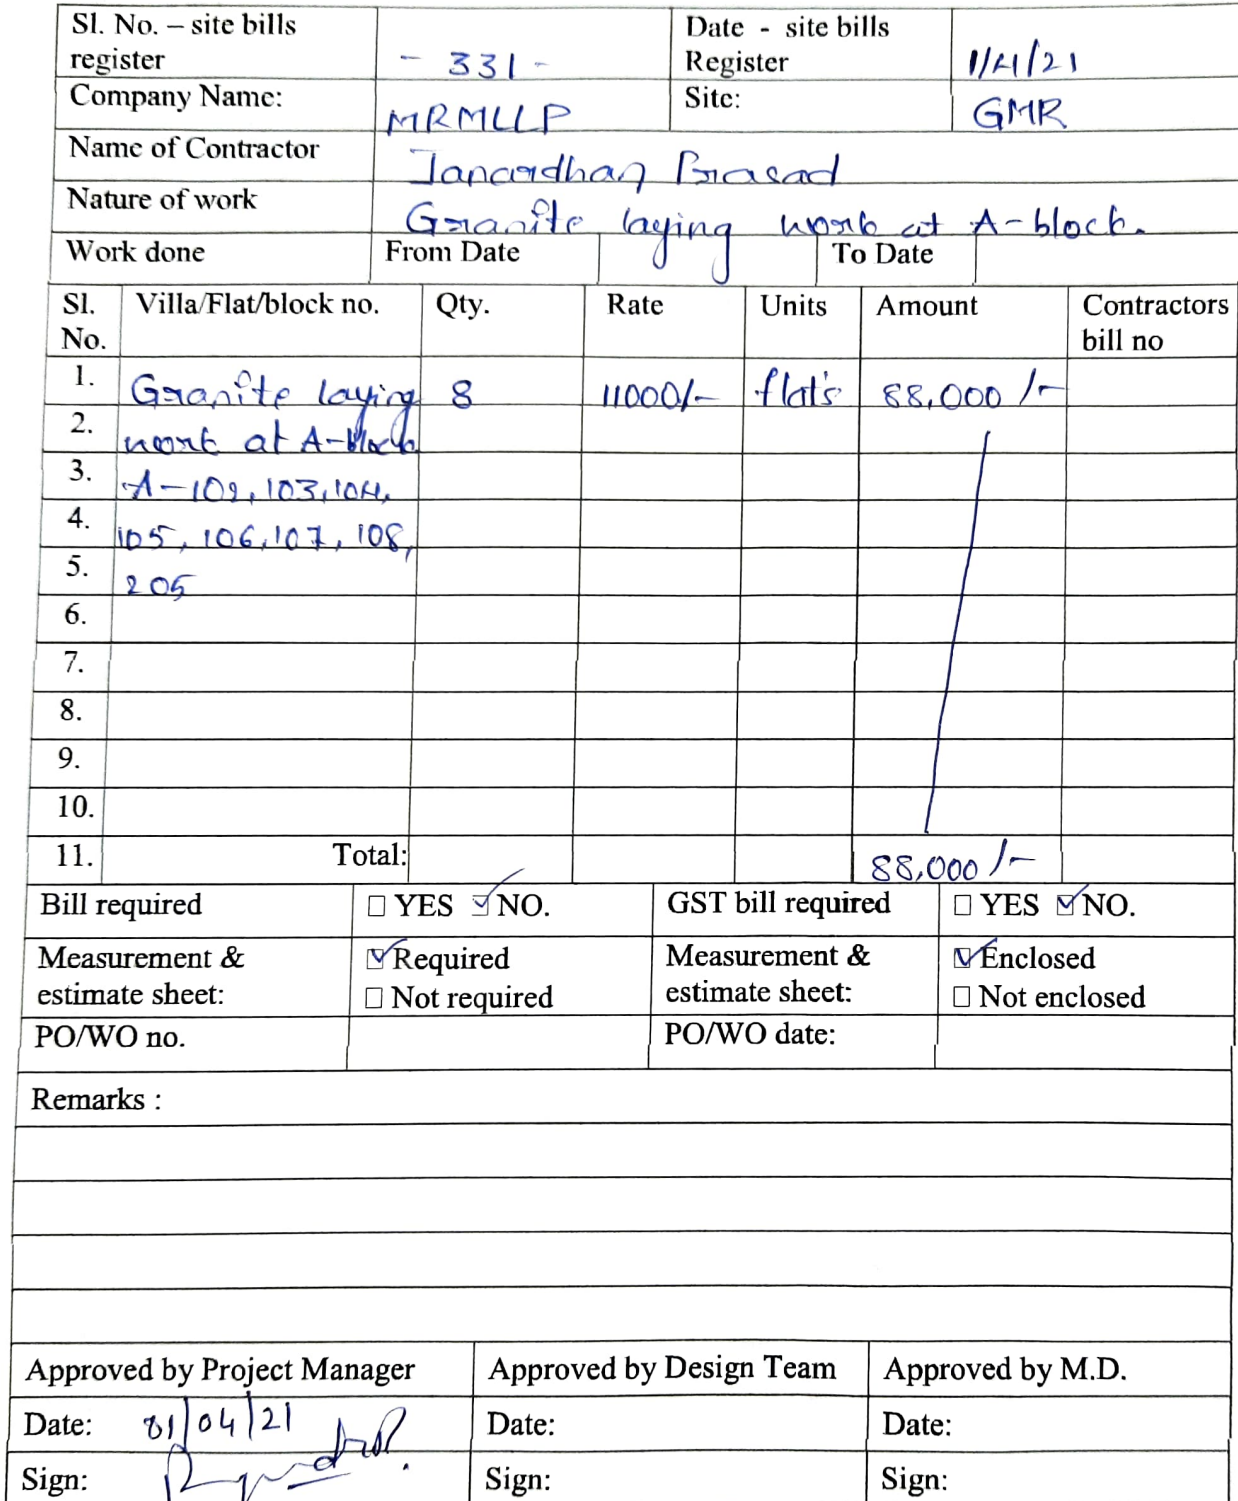 Sl. No. – site bills register - 331 - Date - site bills Register 1/4/21
Company Name: MRMLLP Site: GMR
Name of Contractor Janardhan Prasad
Nature of work Granite laying work at A-block.
Work done From Date To Date
Sl. No. Villa/Flat/block no. Qty. Rate Units Amount Contractors bill no
1. Granite laying 8 11000/- flat's 88,000/-
2. work at A-block
3. A-102, 103, 104,
4. 105, 106, 107, 108,
5. 205
6.
7.
8.
9.
10.
11. Total: 88,000/-
Bill required ☐ YES ☑ NO. GST bill required ☐ YES ☑ NO.
Measurement & estimate sheet: ☑ Required ☐ Not required Measurement & estimate sheet: ☑ Enclosed ☐ Not enclosed
PO/WO no. PO/WO date:
Remarks :
Approved by Project Manager Approved by Design Team Approved by M.D.
Date: 01/04/21 Date: Date:
Sign: Sign: Sign: